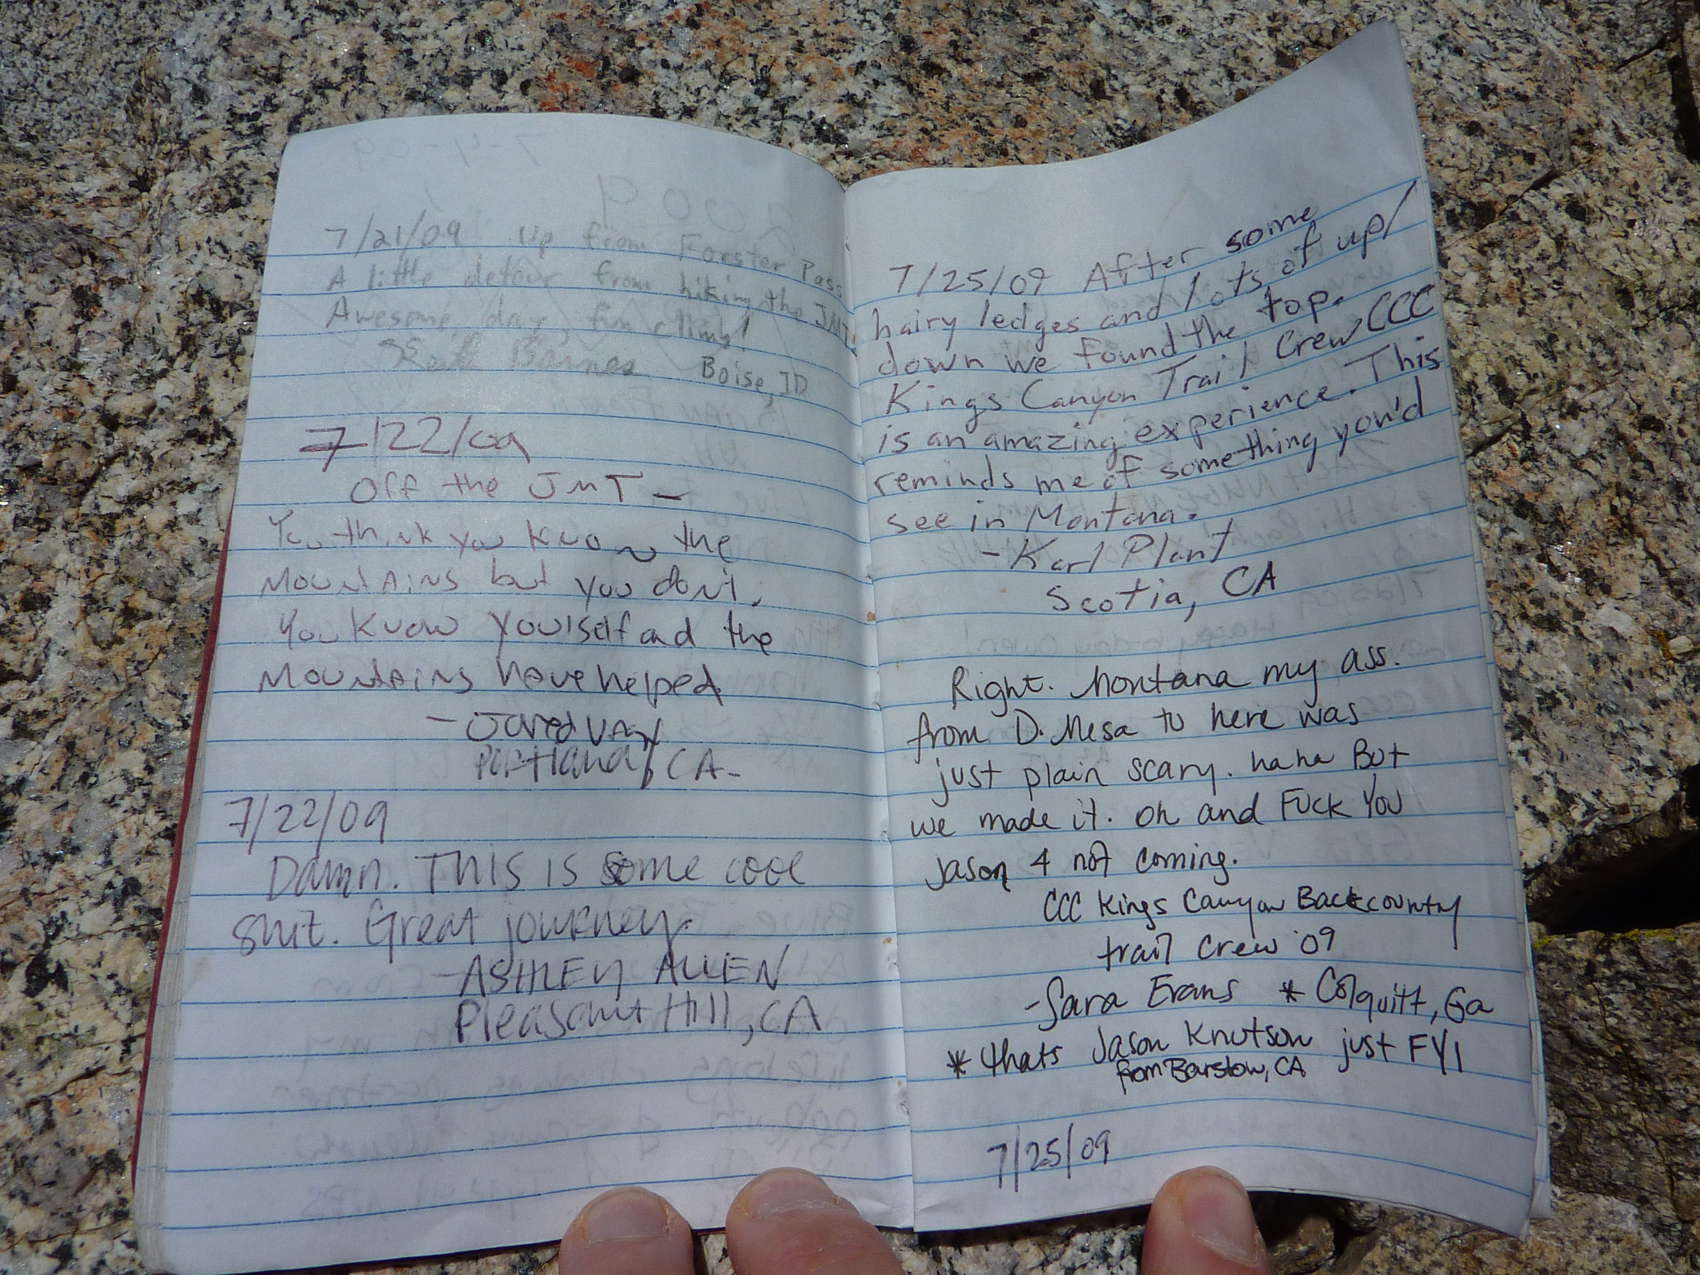 7/21/09 Up from Forester Pass.
A little detour from hiking the JMT.
Awesome day, fun climb!
Barnes Boise, ID
7/22/09
Off the JMT -
You think you know the
Mountains but you don't.
You know yourself and the
Mountains have helped
- Jared
Portland, CA -
7/22/09
Damn. THIS IS some cool
shit. Great journey.
- ASHLEY ALLEN
Pleasant Hill, CA
7/25/09 After some
hairy ledges and lots of up/
down we found the top.
Kings Canyon Trail Crew CCC
is an amazing experience. This
reminds me of something you'd
see in Montana.
- Karl Plant
Scotia, CA
Right. Montana my ass.
from D. Mesa to here was
just plain scary. haha But
we made it. Oh and Fuck You
Jason 4 not coming.
CCC Kings Canyon Backcountry
trail crew '09
- Sara Evans * Colquitt, Ga
* thats Jason Knutson just FYI
from Barstow, CA
7/25/09